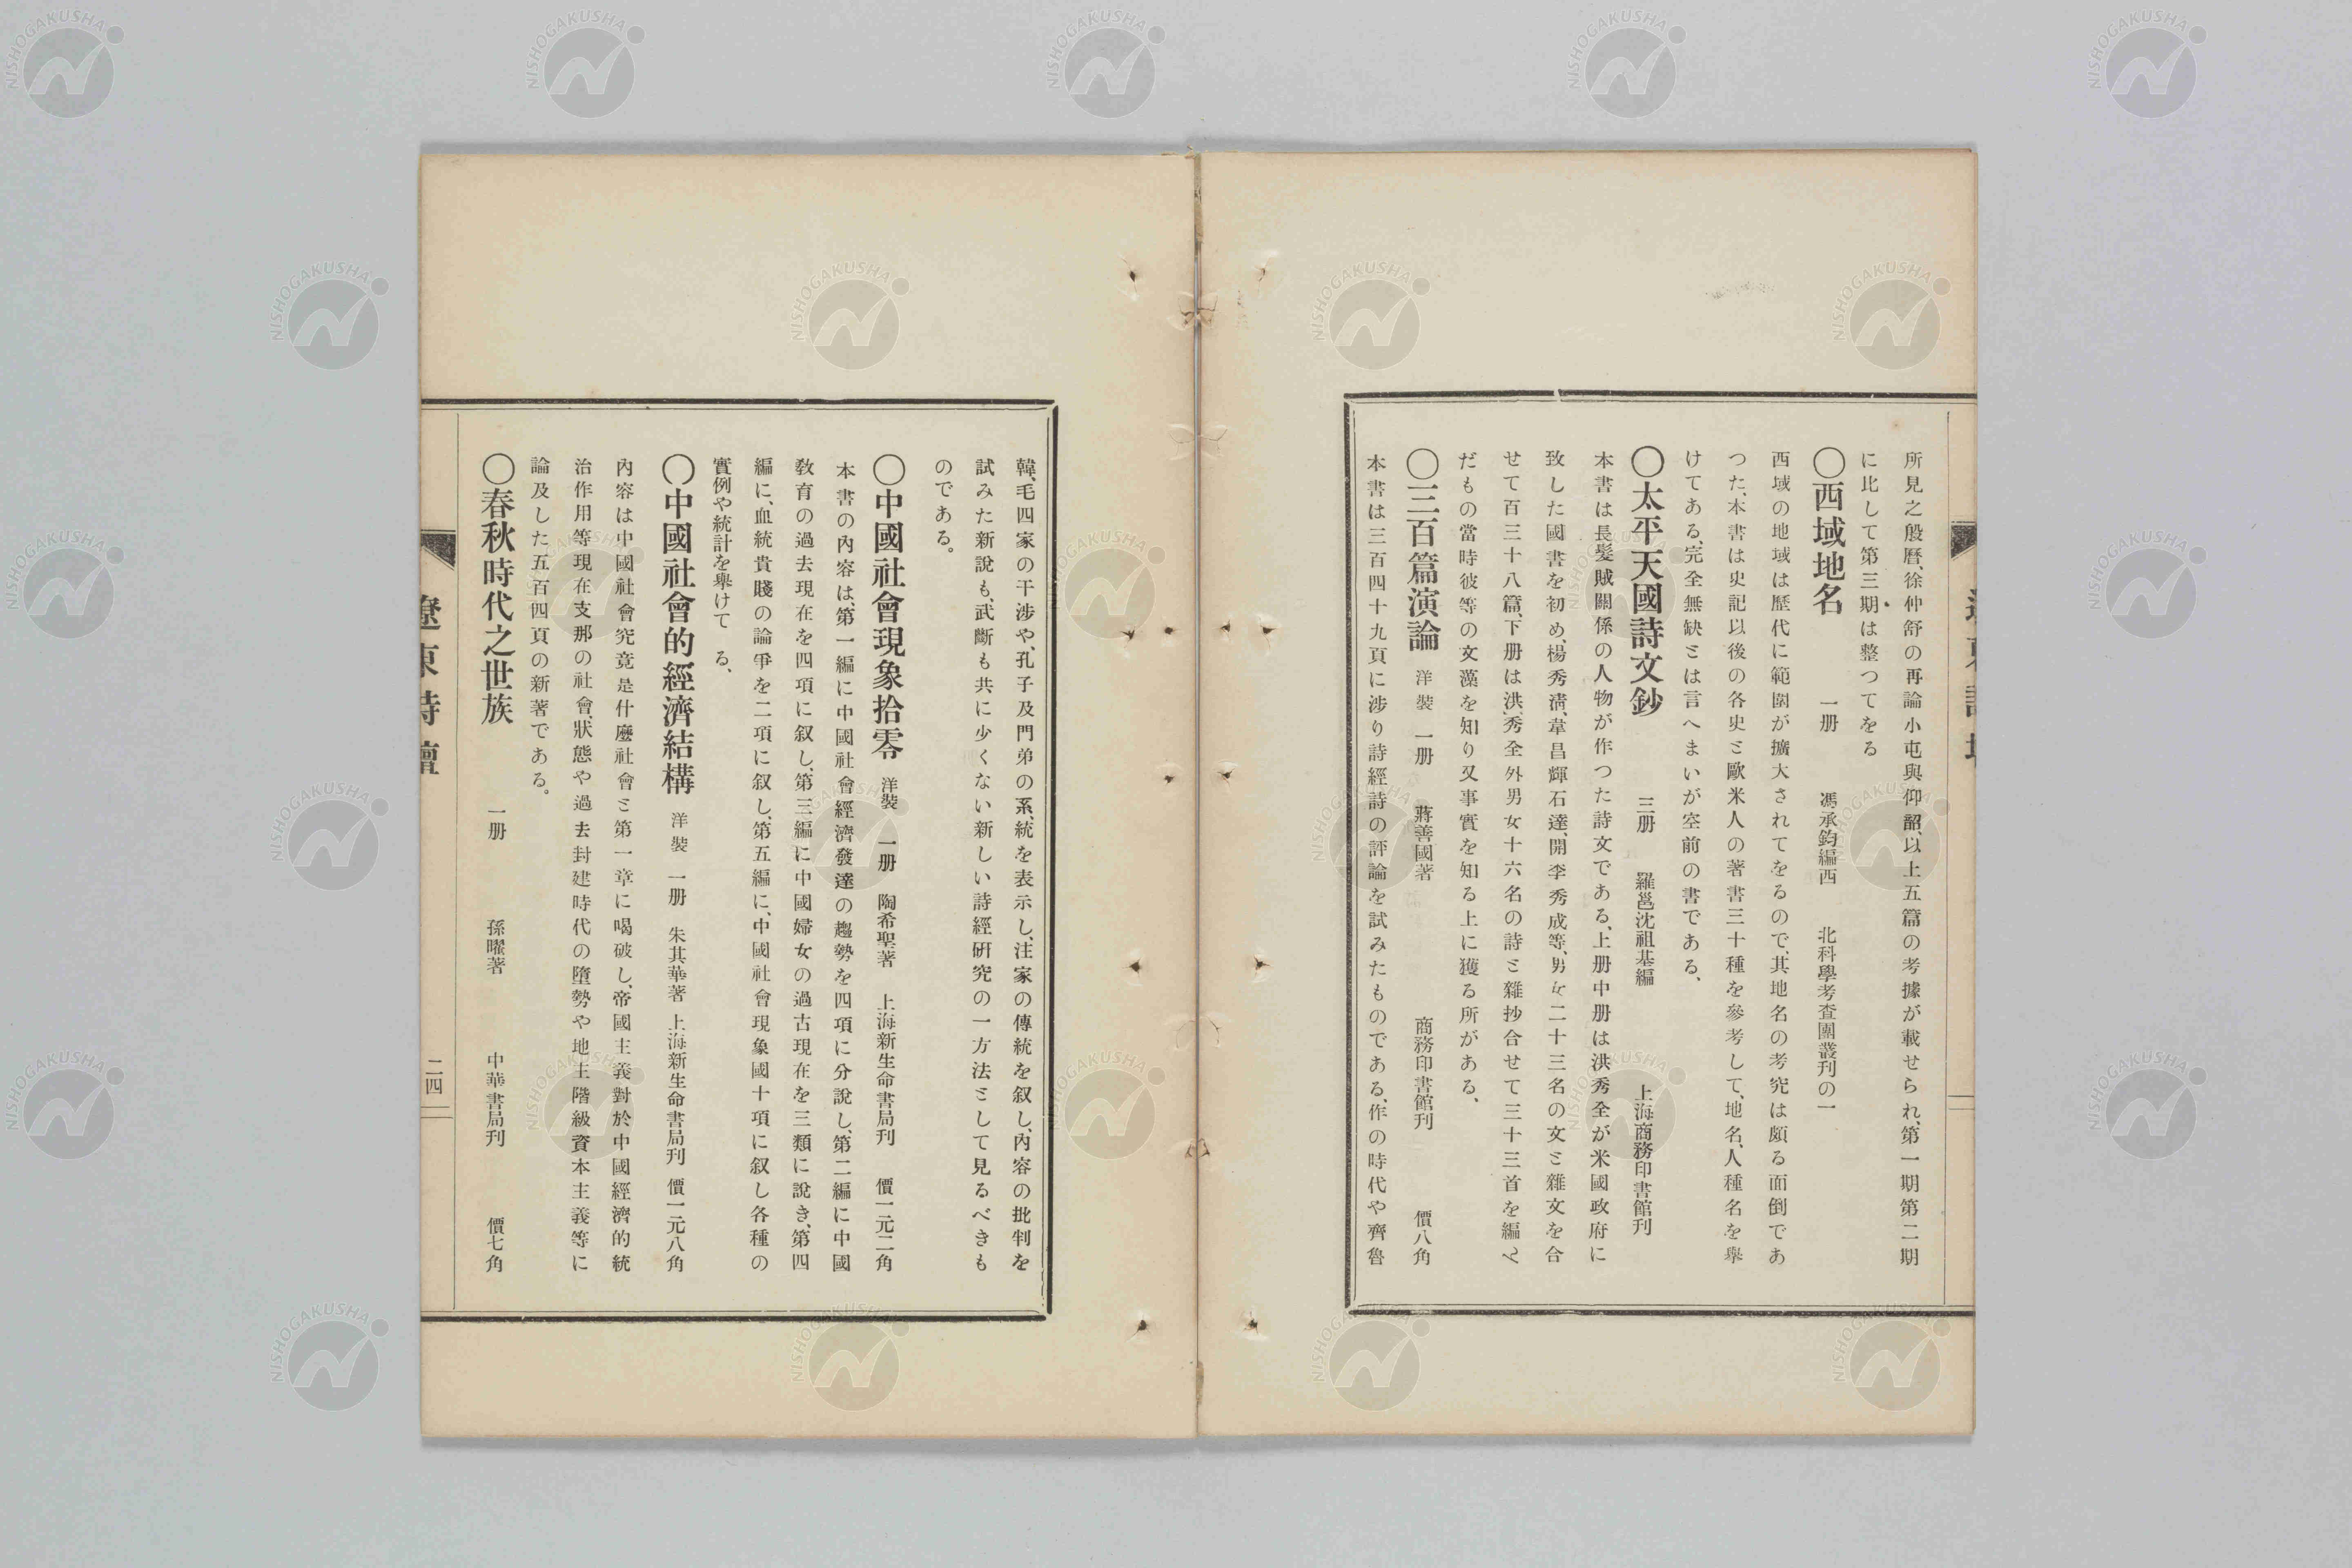 所見之殷曆、徐仲舒の再論小屯與仰韶、以上五篇の考據が載せられ、第一期第二期
に比して第三期は整つてをる
〇西域地名 一册 馮承鈞編西 北科學考查團叢刊の一
西域の地域は歷代に範圍が擴大されてをるので、其地名の考究は頗る面倒であ
つた、本書は史記以後の各史と歐米人の著書三十種を參考して、地名、人種名を擧
けてある、完全無缺とは言へまいが空前の書である、
〇太平天國詩文鈔 三册 羅邕沈祖基編 上海商務印書館刊
本書は長髮賊關係の人物が作つた詩文である、上册中册は洪秀全が米國政府に
致した國書を初め、楊秀淸、韋昌輝石達、開李秀成等、男女二十三名の文と雜文を合
せて百三十八篇、下册は洪秀全外男女十六名の詩と雜抄合せて三十三首を編ん
だもの當時彼等の文藻を知り又事實を知る上に獲る所がある、
〇三百篇演論 洋裝 一册 蔣善國著 商務印書館刊 價八角
本書は三百四十九頁に涉り詩經詩の評論を試みたものである、作の時代や齊魯
韓、毛四家の干涉や、孔子及門弟の系統を表示し、注家の傳統を叙し、內容の批判を
試みた新說も、武斷も共に少くない新しい詩經硏究の一方法として見るべきも
のである。
〇中國社會現象拾零 洋裝 一册 陶希聖著 上海新生命書局刊 價一元二角
本書の內容は、第一編に中國社會經濟發達の趨勢を四項に分說し、第二編に中國
敎育の過去現在を四項に叙し、第三編に中國婦女の過古現在を三類に說き、第四
編に、血統貴賤の論爭を二項に叙し、第五編に、中國社會現象國十項に叙し各種の
實例や統計を擧けて る、
〇中國社會的經濟結構 洋裝 一册 朱其華著 上海新生命書局刊 價一元八角
內容は中國社會究竟是什麼社會と第一章に喝破し、帝國主義對於中國經濟的統
治作用等現在支那の社會、狀態や過去封建時代の墮勢や地主階級資本主義等に
論及した五百四頁の新著である。
〇春秋時代之世族 一册 孫曜著 中華書局刊 價七角
遼東詩壇
二四
NISHOGAKUSHA